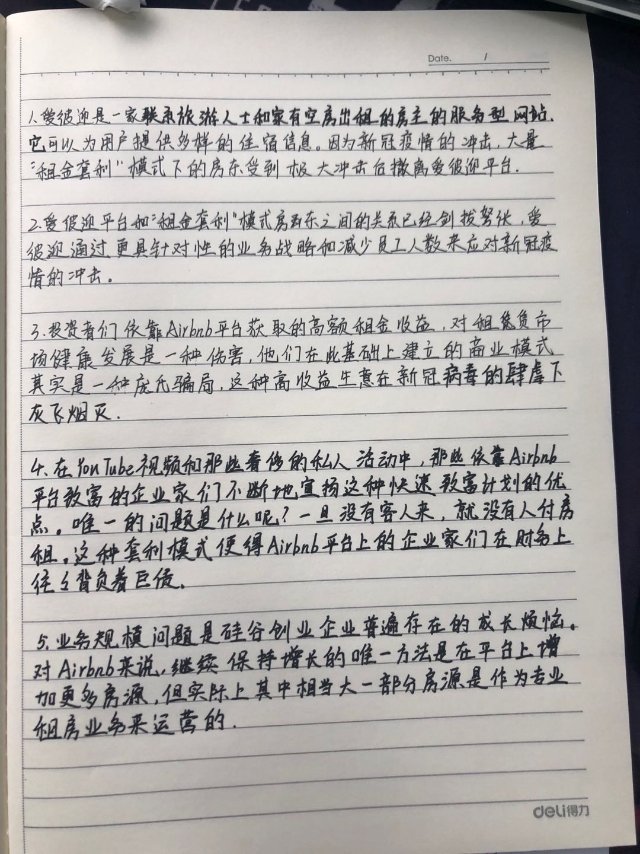 Date. /
1.爱彼迎是一家联系旅游人士和家有空房出租的房主的服务型网站.
它可以为用户提供多样的住宿信息。因为新冠疫情的冲击，大量
"租金套利"模式下的房东受到极大冲击后撤离爱彼迎平台.
2.爱彼迎平台和"租金套利"模式房东之间的关系已经剑拔弩张，爱
彼迎通过更具针对性的业务战略和减少员工人数来应对新冠疫
情的冲击。
3.投资者们依靠Airbnb平台获取的高额租金收益，对租赁市
场健康发展是一种伤害，他们在此基础上建立的商业模式
其实是一种庞氏骗局，这种高收益生意在新冠病毒的肆虐下
灰飞烟灭.
4.在YouTube视频和那些奢侈的私人活动中，那些依靠Airbnb
平台致富的企业家们不断地宣扬这种快速致富计划的优
点。唯一的问题是什么呢？一旦没有客人来，就没有人付房
租。这种套利模式使得Airbnb平台上的企业家们在财务上
往々背负着巨债。
5.业务规模问题是硅谷创业企业普遍存在的成长烦恼。
对Airbnb来说，继续保持增长的唯一方法是在平台上增
加更多房源，但实际上其中相当大一部分房源是作为专业
租房业务来运营的.
deli得力